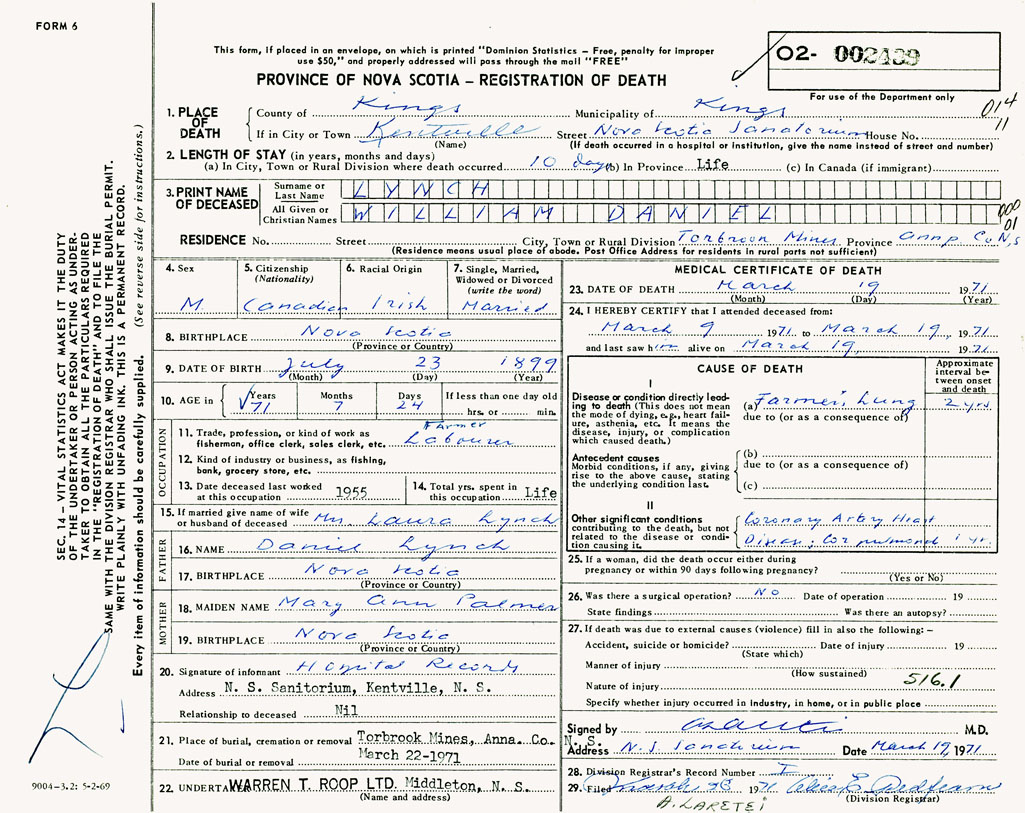 FORM 6
This form, if placed in an envelope, on which is printed "Dominion Statistics – Free, penalty for improper
use $50," and properly addressed will pass through the mail "FREE"
PROVINCE OF NOVA SCOTIA – REGISTRATION OF DEATH
O2- 002439
For use of the Department only
014
11
1. PLACE OF DEATH
County of Kings Municipality of Kings
If in City or Town Kentville Street Nova Scotia Sanatorium House No.
(Name) (If death occurred in a hospital or institution, give the name instead of street and number)
2. LENGTH OF STAY (in years, months and days)
(a) In City, Town or Rural Division where death occurred 10 days (b) In Province Life (c) In Canada (if immigrant)
3. PRINT NAME OF DECEASED
Surname or Last Name LYNCH
All Given or Christian Names WILLIAM DANIEL
000
01
RESIDENCE No. Street City, Town or Rural Division Torbrook Mines Province Annp Co N.S
(Residence means usual place of abode. Post Office Address for residents in rural parts not sufficient)
4. Sex
M.
5. Citizenship (Nationality)
Canadian
6. Racial Origin
Irish
7. Single, Married, Widowed or Divorced (write the word)
Married
8. BIRTHPLACE Nova Scotia
(Province or Country)
9. DATE OF BIRTH July 23 1899
(Month) (Day) (Year)
10. AGE in Years 71 Months 7 Days 24 If less than one day old hrs. or min.
OCCUPATION
11. Trade, profession, or kind of work as
fisherman, office clerk, sales clerk, etc. Farmer Labourer
12. Kind of industry or business, as fishing,
bank, grocery store, etc.
13. Date deceased last worked at this occupation 1955
14. Total yrs. spent in this occupation Life
15. If married give name of wife or husband of deceased Mrs. Laura Lynch
FATHER
16. NAME Daniel Lynch
17. BIRTHPLACE Nova Scotia
(Province or Country)
MOTHER
18. MAIDEN NAME Mary Ann Palmer
19. BIRTHPLACE Nova Scotia
(Province or Country)
20. Signature of informant Hospital Records
Address N. S. Sanitorium, Kentville, N. S.
Relationship to deceased Nil
21. Place of burial, cremation or removal Torbrook Mines, Anna. Co. N. S.
Date of burial or removal March 22-1971
22. UNDERTA WARREN T. ROOP LTD. Middleton, N. S.
(Name and address)
MEDICAL CERTIFICATE OF DEATH
23. DATE OF DEATH March 19 1971
(Month) (Day) (Year)
24. I HEREBY CERTIFY that I attended deceased from:
March 9 1971 to March 19, 1971
and last saw him alive on March 19, 1971
CAUSE OF DEATH
Approximate interval between onset and death
I
Disease or condition directly leading to death (This does not
mean the mode of dying, e.g., heart failure, asthenia, etc. It means the
disease, injury, or complication
which caused death.)
(a) Farmer's Lung 2 yrs.
due to (or as a consequence of)
Antecedent causes
Morbid conditions, if any, giving
rise to the above cause, stating
the underlying condition last.
(b)
due to (or as a consequence of)
(c)
II
Other significant conditions
contributing to the death, but not
related to the disease or condition causing it.
Coronary Artery Heart
Disease; Cor pulmonal 1 yr.
25. If a woman, did the death occur either during
pregnancy or within 90 days following pregnancy?
(Yes or No)
26. Was there a surgical operation? NO Date of operation 19
State findings Was there an autopsy?
27. If death was due to external causes (violence) fill in also the following: –
Accident, suicide or homicide? Date of injury 19
(State which)
Manner of injury
(How sustained)
516.1
Nature of injury
Specify whether injury occurred in industry, in home, or in public place
Signed by M.D.
Address N. S. Sanatorium Date March 19, 1971
28. Division Registrar's Record Number
29. Filed March 1971
(Division Registrar)
A. LARETEI
SEC. 14 – VITAL STATISTICS ACT MAKES IT THE DUTY
OF THE UNDERTAKER OR PERSON ACTING AS UNDER-
TAKER TO OBTAIN ALL THE PARTICULARS REQUIRED
IN THE "REGISTRATION OF DEATH" AND TO FILE THE
SAME WITH THE DIVISION REGISTRAR WHO SHALL ISSUE THE BURIAL PERMIT.
WRITE PLAINLY WITH UNFADING INK. THIS IS A PERMANENT RECORD.
Every item of information should be carefully supplied. (See reverse side for instructions.)
9004-3.2: 5-2-69